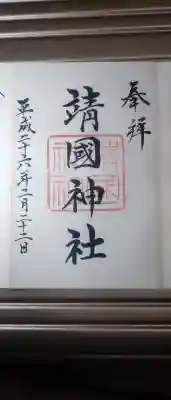 奉拝
靖國神社
平成二十六年二月二十二日